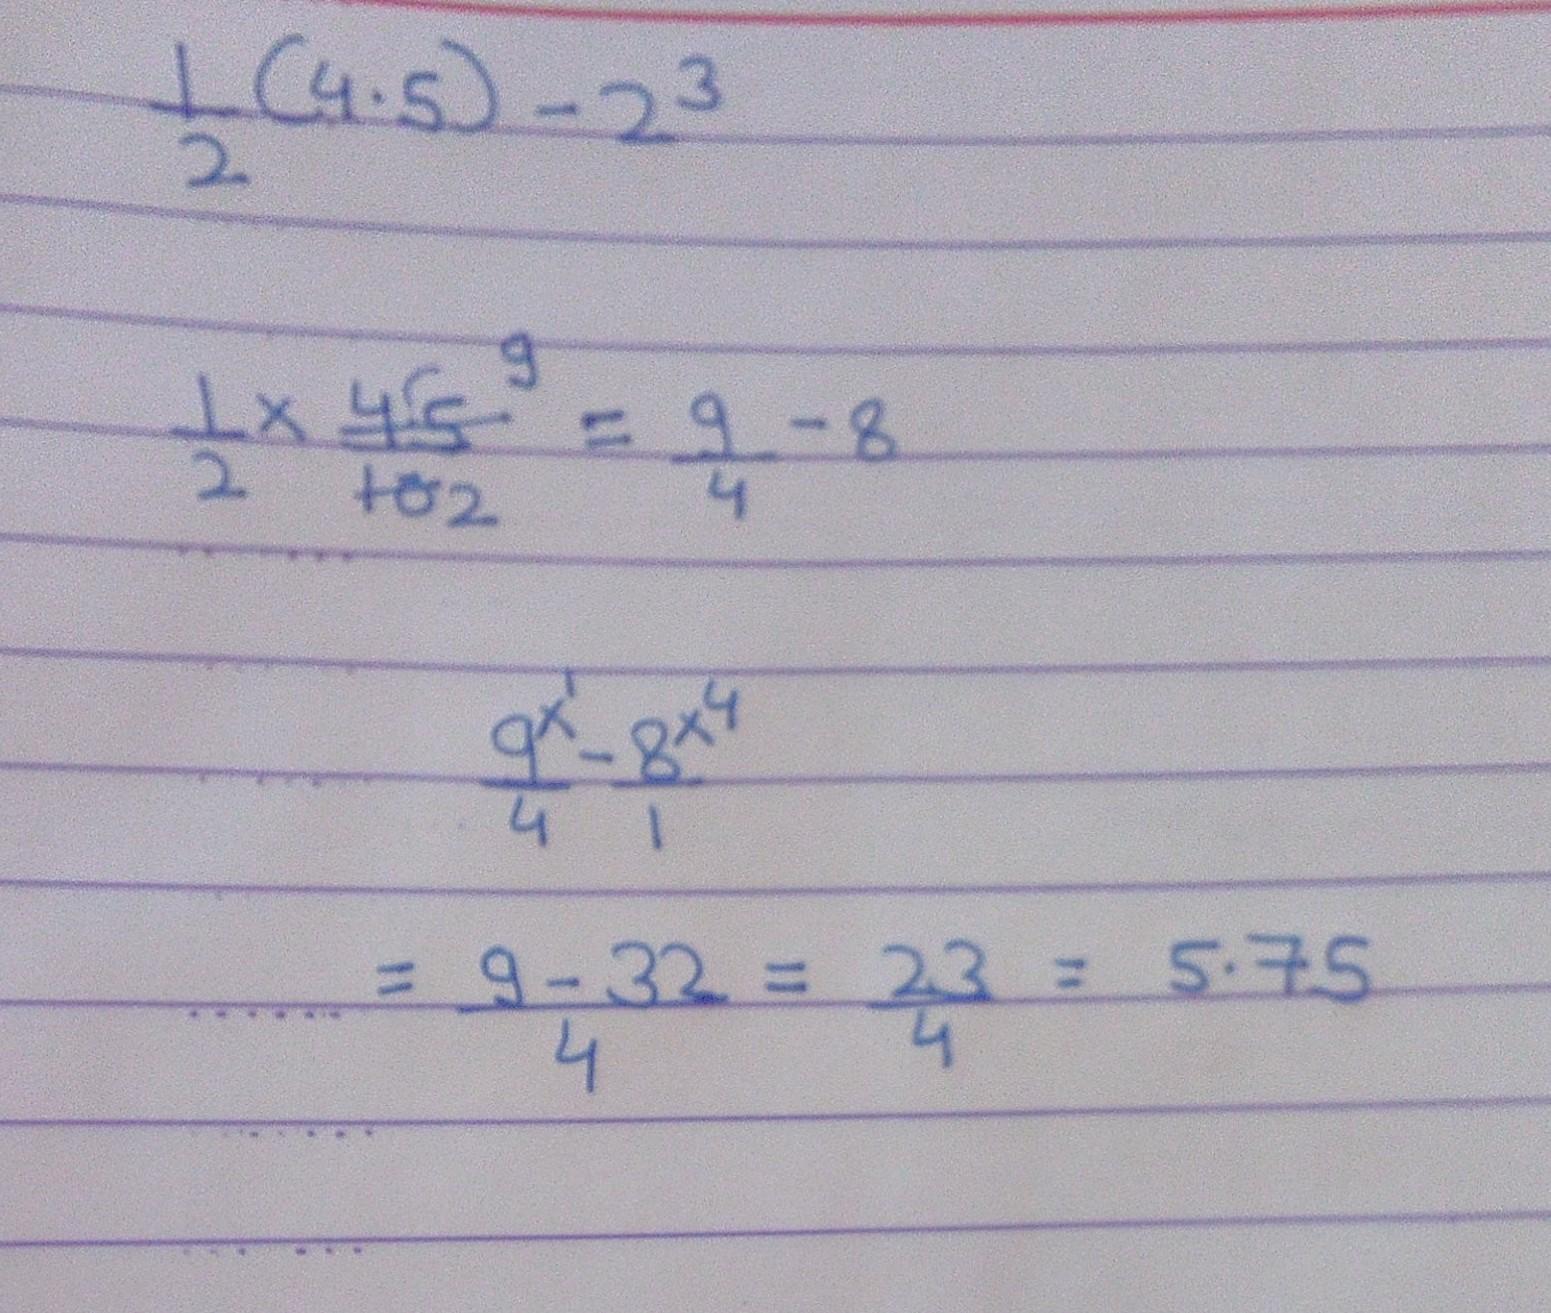 1/2 (4.5) - 2³
1/2 × 45/10 9 2 = 9/4 - 8
9×1/4 - 8×4/1
= 9 - 32/4 = 23/4 = 5.75